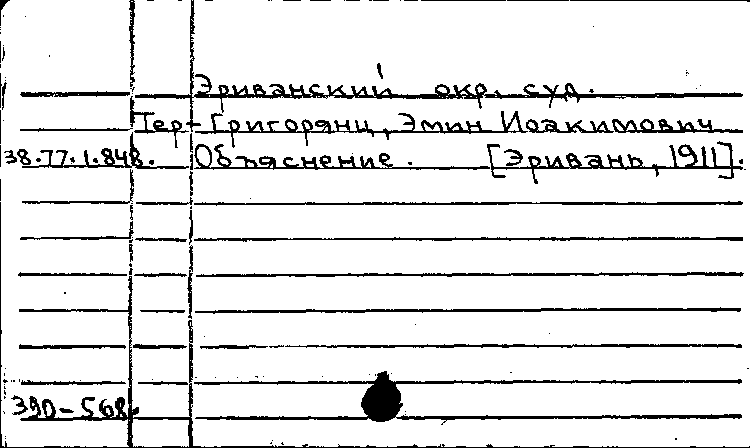 Эриванский окр. суд.
Тер-Григорянц, Эмин Иоакимович
38.77.1.848. Объяснение. [Эривань, 1911].
390-568.